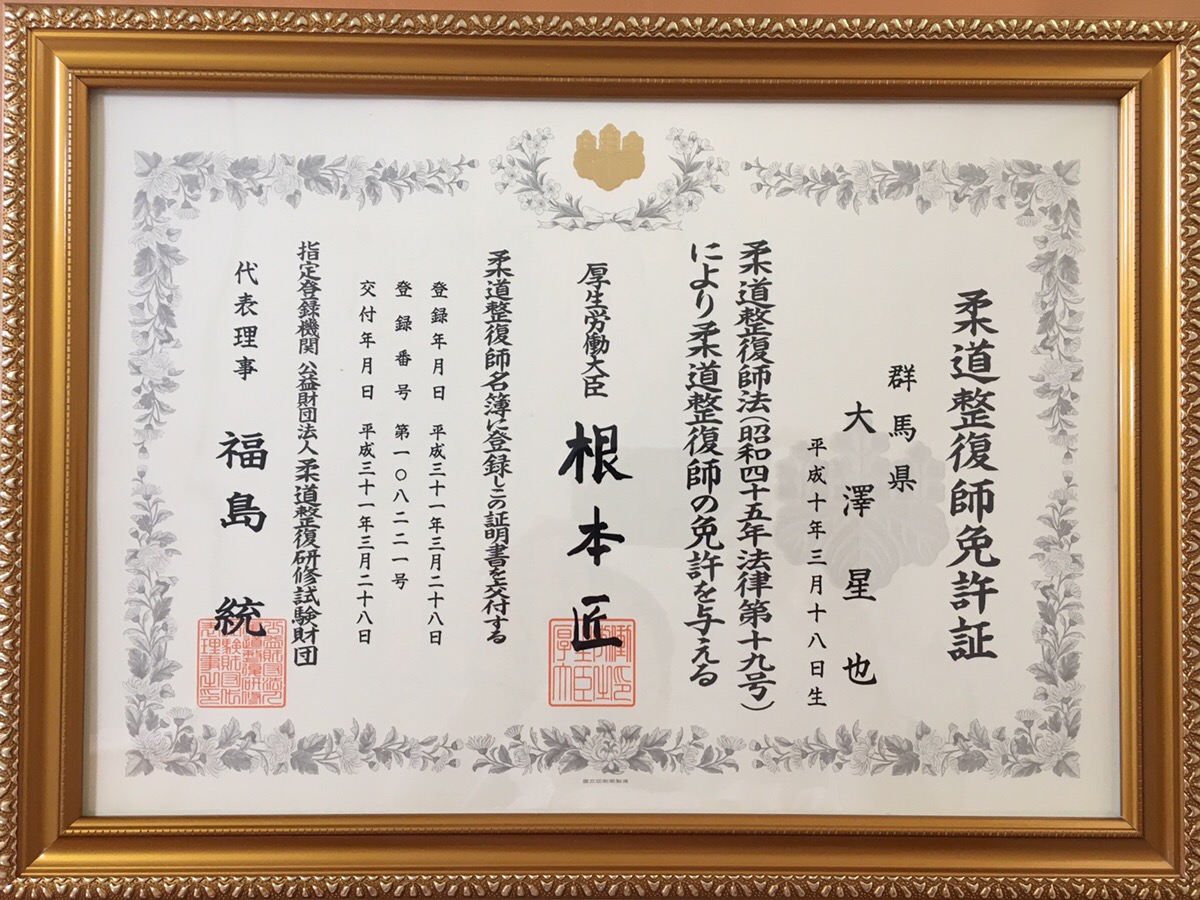 柔道整復師免許証
群馬県
大澤星也
平成十年三月十八日生
柔道整復師法(昭和四十五年法律第十九号)
により柔道整復師の免許を与える
厚生労働大臣 根本匠
柔道整復師名簿に登録しこの証明書を交付する
登録年月日 平成三十一年三月二十八日
登録番号 第一〇八二二一号
交付年月日 平成三十一年三月二十八日
指定登録機関 公益財団法人 柔道整復研修試験財団
代表理事 福島統